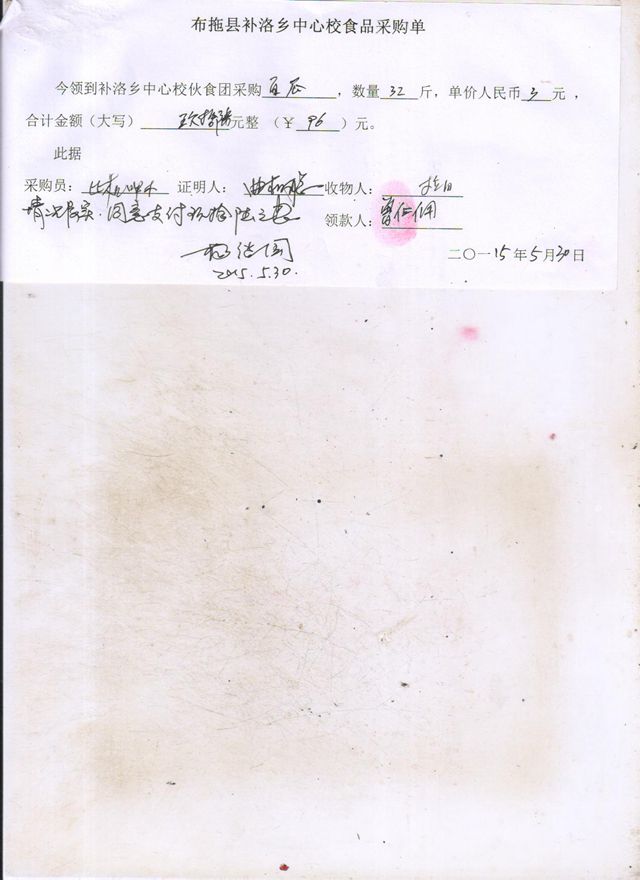 布拖县补洛乡中心校食品采购单
今领到补洛乡中心校伙食团采购，数量 32 斤，单价人民币 3 元，
合计金额（大写） 玖拾陆元整 （￥ 96 ）元。
此据
采购员： 证明人： 收物人：
情况属实.同意支付玖拾陆元整
领款人：曾仁佣
二〇一15年5月30日
2015.5.30.